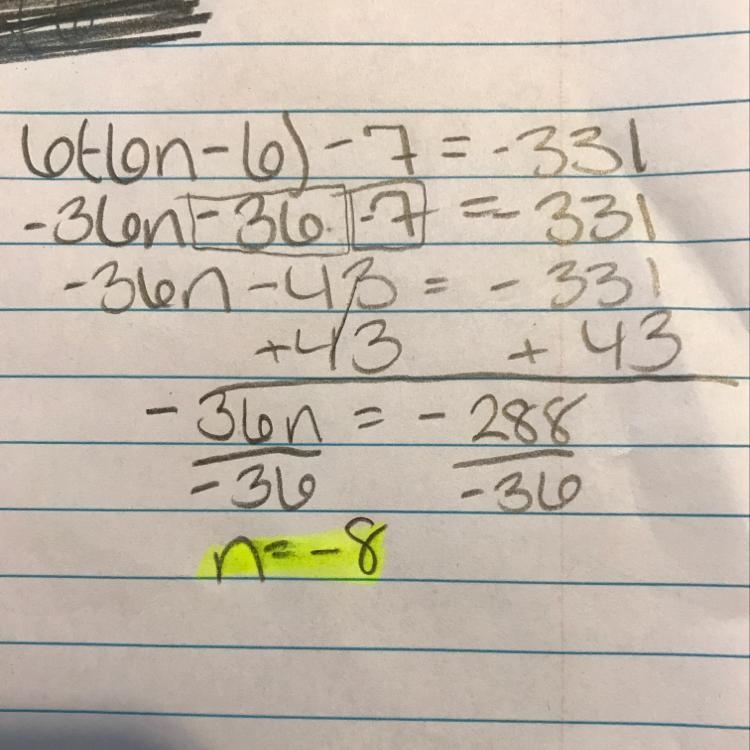 6(-6n-6)-7=-331
-36n-36-7=-331
-36n-43=-331
+43 +43
-36n=-288
-36 -36
n=-8